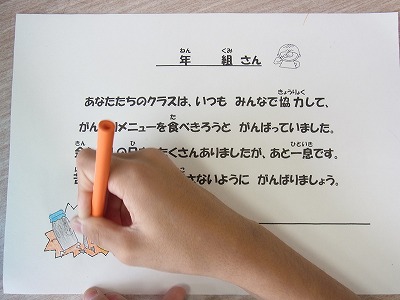 年 組 さん
あなたたちのクラスは、いつも みんなで協力して、
メニューを食べきろうと がんばっていました。
たくさんありましたが、あと一息です。
さないように がんばりましょう。